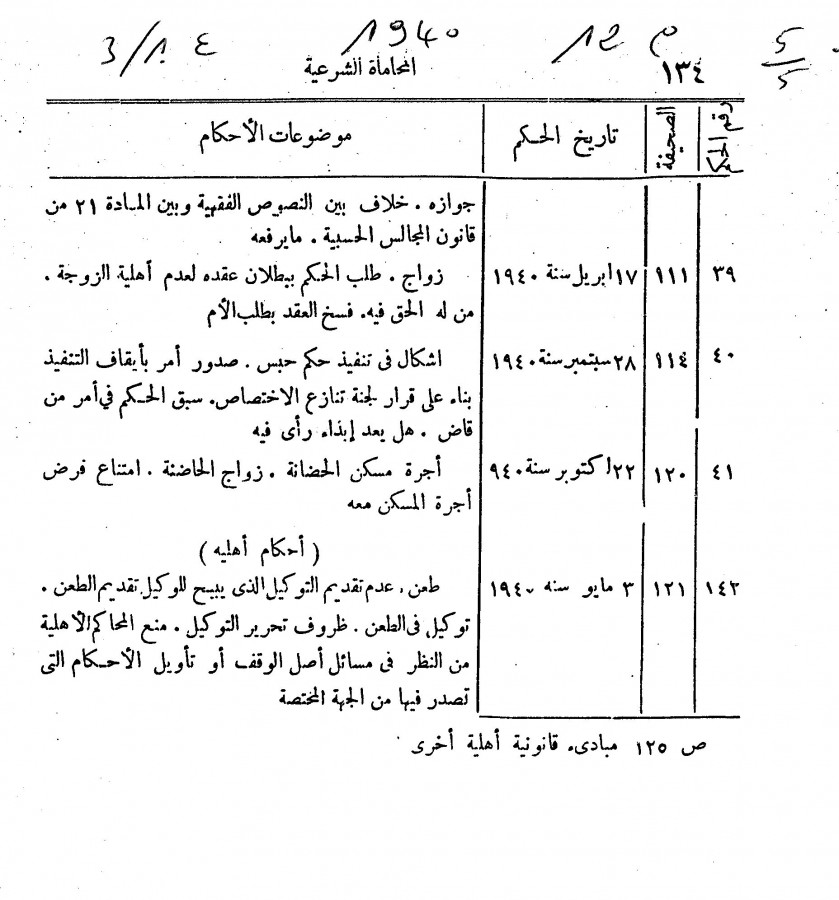 5/5 م 12 1940 3/1. ٤
١٣٤ المحاماة الشرعية
رقم الحكم الصحيفة تاريخ الحكم موضوعات الأحكام
جوازه . خلاف بين النصوص الفقهية وبين المادة ٢١ من
قانون المجالس الحسبية . مايرفعه
٣٩ ١١١ ١٧ ابريل سنة ١٩٤٠ زواج . طلب الحكم ببطلان عقده لعدم أهلية الزوجة .
من له الحق فيه. فسخ العقد بطلب الأم
٤٠ ١١٤ ٢٨ سبتمبر سنة ١٩٤٠ اشكال فى تنفيذ حكم حبس . صدور أمر بأيقاف التنفيذ
بناء على قرار لجنة تنازع الاختصاص. سبق الحكم فى أمر من
قاض . هل يعد إبذاء رأى فيه
٤١ ١٢٠ ٢٢ اكتوبر سنة ٩٤٠ أجرة مسكن الحضانة . زواج الحاضنة . امتناع فرض
أجرة المسكن معه
( أحكام أهليه )
١٤٢ ١٢١ ٣ مايو سنه ١٩٤٠ طعن . عدم تقديم التوكيل الذى يبيح للوكيل تقديم الطعن .
توكيل فى الطعن . ظروف تحرير التوكيل . منع المحاكم الأهلية
من النظر فى مسائل أصل الوقف أو تأويل الأحكام التى
تصدر فيها من الجهة المختصة
ص ١٢٥ مبادىء قانونية أهلية أخرى